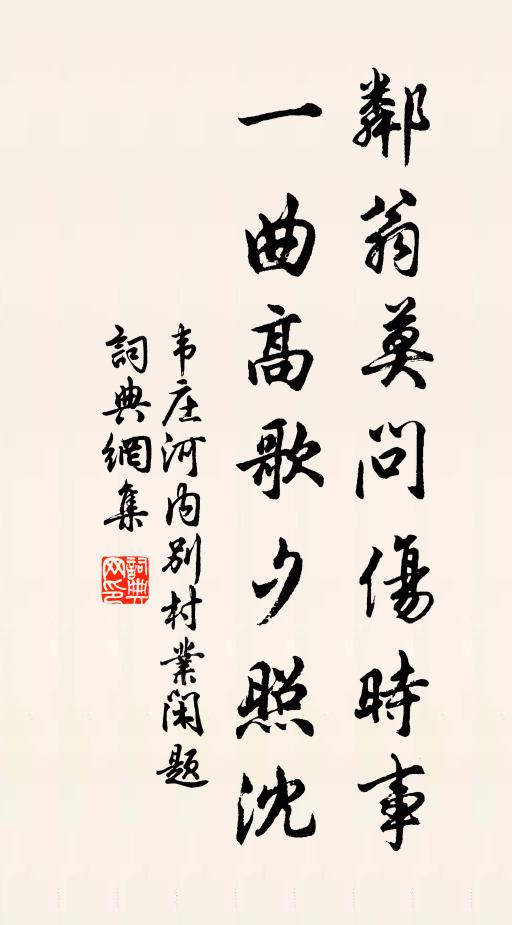 鄰翁莫問傷時事
一曲高歌夕照沈
韦庄河内别村業閑題
詞典網集
詞典网印